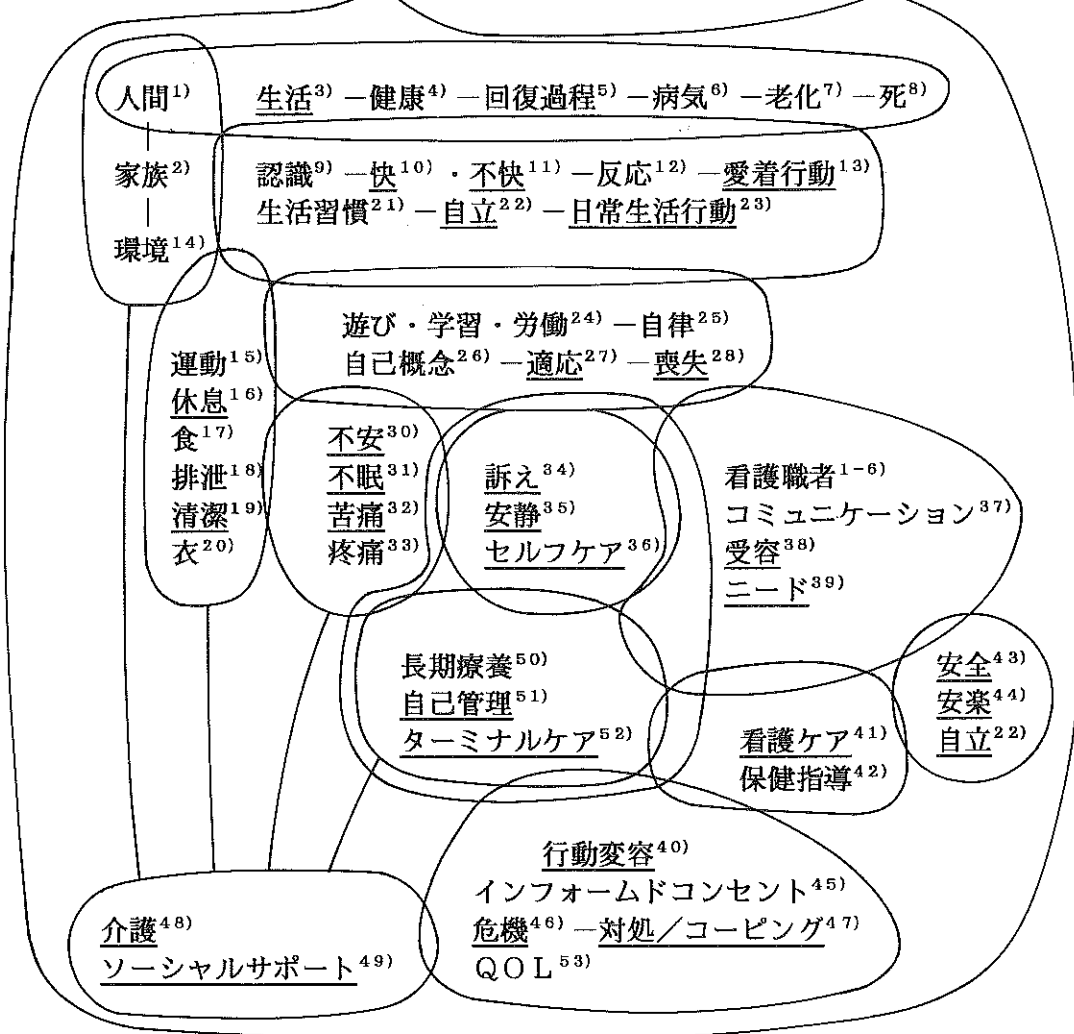 人間1) 生活3) －健康4) －回復過程5) －病気6) －老化7) －死8)
家族2) 認識9) －快10) ・不快11) －反応12) －愛着行動13)
生活習慣21) －自立22) －日常生活行動23)
環境14)
遊び・学習・労働24) －自律25)
自己概念26) －適応27) －喪失28)
運動15)
休息16)
食17)
排泄18)
清潔19)
衣20)
不安30)
不眠31)
苦痛32)
疼痛33)
訴え34)
安静35)
セルフケア36)
看護職者1-6)
コミュニケーション37)
受容38)
ニード39)
長期療養50)
自己管理51)
ターミナルケア52)
看護ケア41)
保健指導42)
安全43)
安楽44)
自立22)
行動変容40)
インフォームドコンセント45)
危機46) －対処／コーピング47)
QOL53)
介護48)
ソーシャルサポート49)